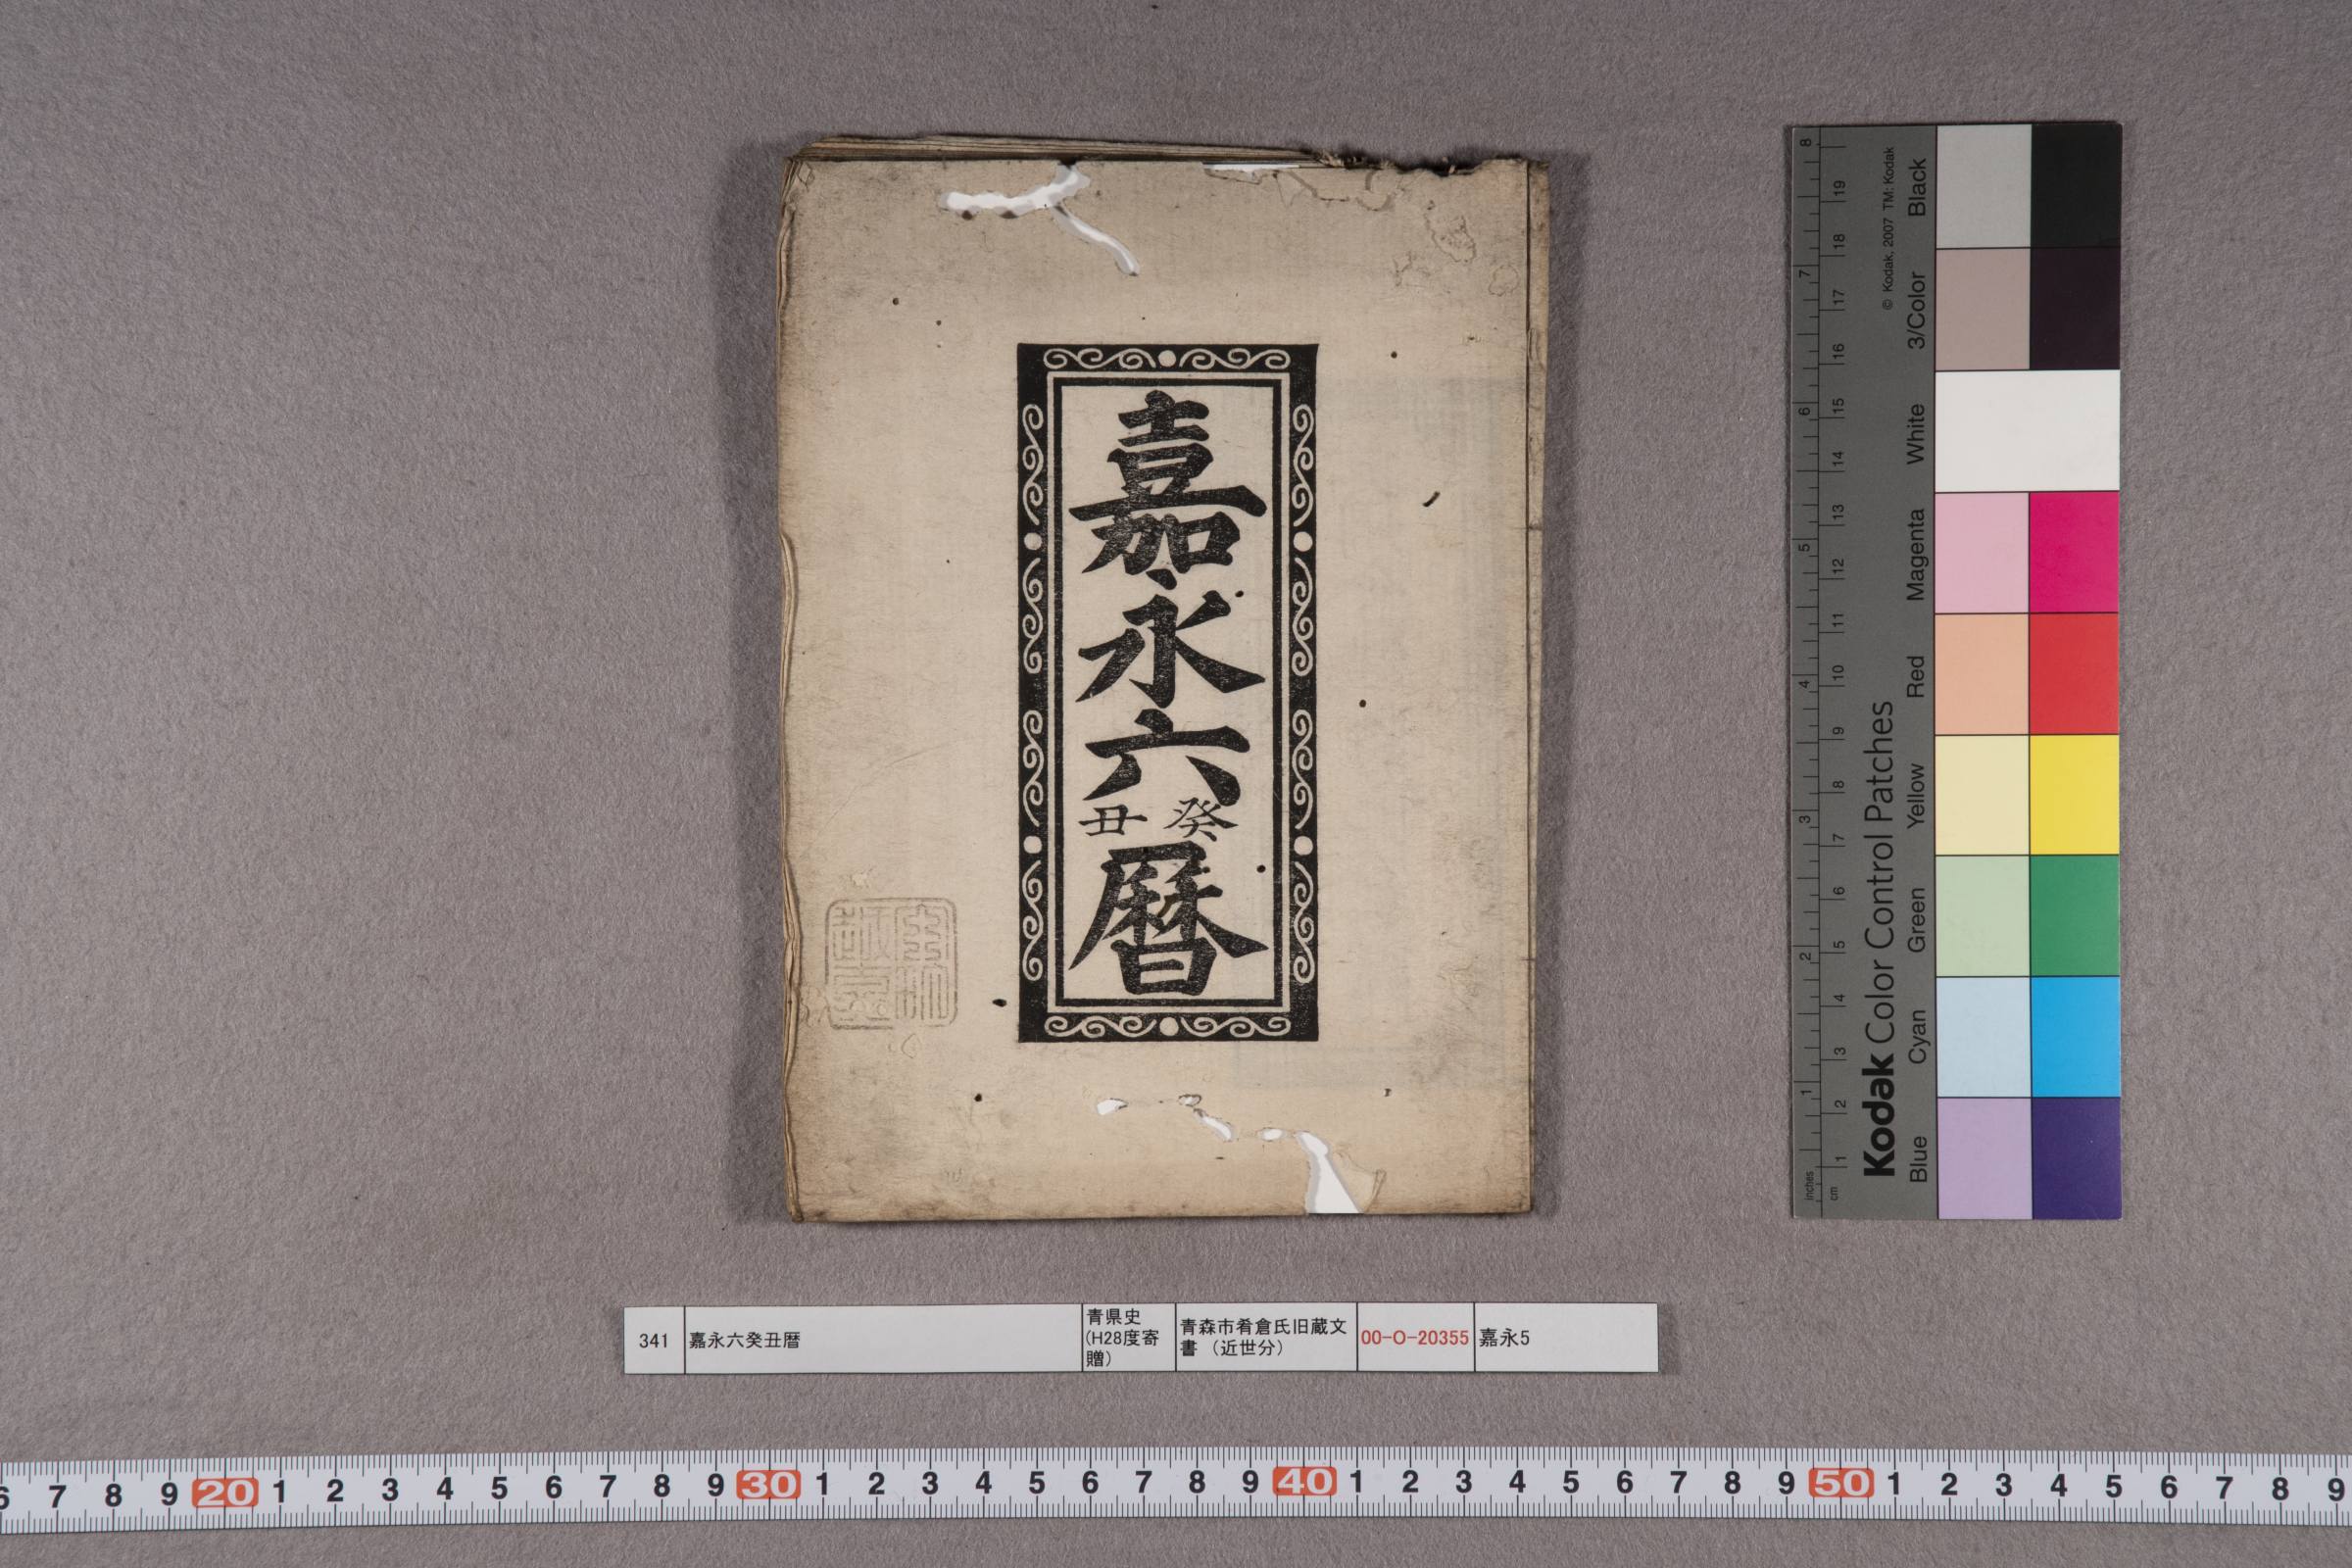 嘉永六
癸丑
暦
341
嘉永六癸丑暦
青県史
(H28度寄
贈)
青森市肴倉氏旧蔵文
書 (近世分)
00-O-20355
嘉永5
Kodak Color Control Patches
© Kodak, 2007 TM: Kodak
Blue Cyan Green Yellow Red Magenta White 3/Color Black
inches 1 2 3 4 5 6 7 8
cm 1 2 3 4 5 6 7 8 9 10 11 12 13 14 15 16 17 18 19
6 7 8 9 20 1 2 3 4 5 6 7 8 9 30 1 2 3 4 5 6 7 8 9 40 1 2 3 4 5 6 7 8 9 50 1 2 3 4 5 6 7 8 9